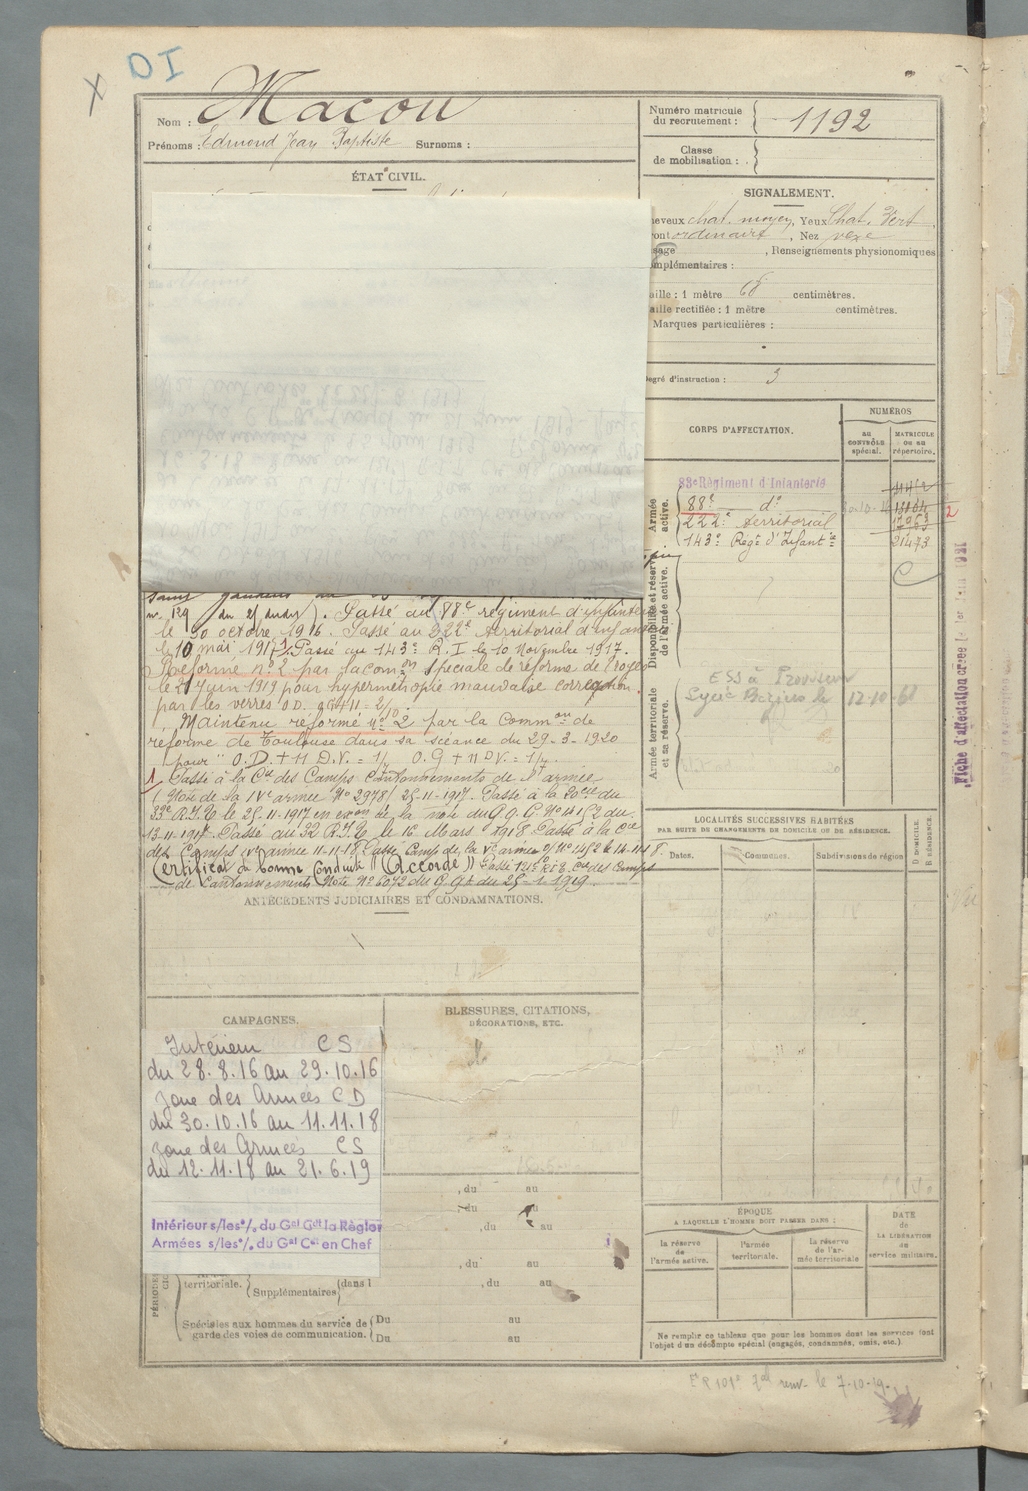 DI
X
Nom : Macou
Prénoms : Edmond Jean Baptiste Surnoms :
Numéro matricule du recrutement : 1192
Classe de mobilisation :
ÉTAT CIVIL.
SIGNALEMENT.
heveux chat. moyen, Yeux Chat. Vert
ront ordinaire, Nez vexe
sage , Renseignements physionomiques
omplémentaires :
aille : 1 mètre 68 centimètres.
aille rectifiée : 1 mètre centimètres.
Marques particulières :
egré d'instruction : 3
CORPS D'AFFECTATION.
NUMÉROS
au CONTRÔLE spécial.
MATRICULE ou au répertoire.
Armée active.
83e Régiment d'Infanterie
88e do
222e territorial
143e Régt d'Infant
21473
Disponibilité et réserve de l'armée active.
Armée territoriale et sa réserve.
ESS à Proviseur
Lycée 12-10-61
Fiche d'affectation créée le 1er
n. 129 du 21 . Passé au 88e régiment d'infanterie
le 30 octobre 1916. Passé au 222e territorial d'infant
le 10 mai 1917. Passé au 143e R. I le 10 Novembre 1917.
Réformé no 2 par la comon spéciale de réforme de Troyes
le 21 Juin 1919 pour hypermétropie mauvaise correction
par les verres O.D.
Maintenu réformé no 2 par la Common de
réforme de Toulouse dans sa scéance du 29-3-1920
pour O.D. + 11 D.V. = 1/ O.G + 11 D V. = 1/
1 Passé à la Cie des Camps Cantonnements de l'armée
(Note de la IVe armée No 2978/ 25-11-1917. Passé à la 20e cie du
33e R.I.T. le 25.11.1917 en exon de la note du G.Q.G. No 14152 du
13-11-1917. Passé au 32 R.I.T. le 16 Mars 1918 Passé à la Cie
des Camps IVe armée 11-11-18 Passé Camp de la Ve armée No 14152 le 14-11-18
Certificat de bonne Conduite "Accordé" Passé 121e R.I.T. Cie des Camps
de Cantonnements Note No 6072 du G.Q.G du 25-1-1919.
ANTÉCÉDENTS JUDICIAIRES ET CONDAMNATIONS.
LOCALITÉS SUCCESSIVES HABITÉES
PAR SUITE DE CHANGEMENTS DE DOMICILE OU DE RÉSIDENCE.
Dates.
Communes.
Subdivisions de région
D DOMICILE.
R RÉSIDENCE.
CAMPAGNES.
Intérieur CS
du 28.8.16 au 29.10.16
Zone des Armées CD
du 30.10.16 au 11.11.18
Zone des Armées CS
du 12.11.18 au 21.6.19
Intérieur s/les o/. du Gal Gdt la Région
Armées s/les o/. du Gal Ct en Chef
BLESSURES, CITATIONS,
DÉCORATIONS, ETC.
, du au
, du au
, du au
, du au
territoriale. Supplémentaires dans l , du au
Spéciales aux hommes du service de garde des voies de communication.
Du au
Du au
ÉPOQUE
A LAQUELLE L'HOMME DOIT PASSER DANS :
la réserve de l'armée active.
l'armée territoriale.
la réserve de l'armée territoriale
DATE de LA LIBÉRATION du service militaire.
Ne remplir ce tableau que pour les hommes dont les services font
l'objet d'un décompte spécial (engagés, condamnés, omis, etc.).
le 7-10-19